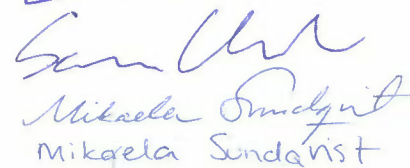 Mikaela Sundqvist
Mikaela Sundqvist